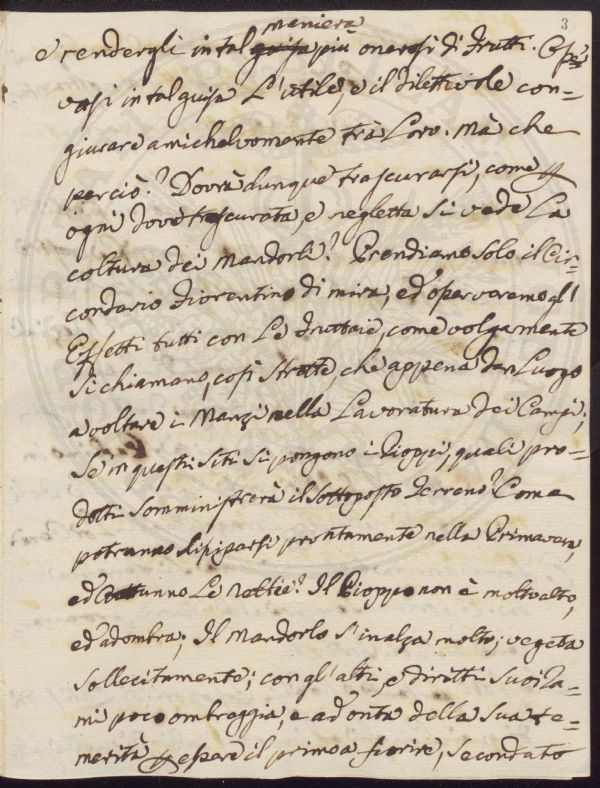 3
maniera
e rendergli in tal guisa più onerosi di frutti.
vasi in tal guisa L'utile, e il dilettevole con-
giurare amichelvomente trà Loro. Mà che
perciò? Dovrà dunque trascurarsi, come p
ogni dove trascurata, e negletta si vede La
coltura dei Mandorli? Prendiamo solo il Cir-
condario Fiorentino di mira, ed osserveremo gl'
Effetti tutti con Le fruttaie, come volgarmente
si chiamano, così strette, che appena dan Luogo
a voltare i Manzi nella Lavoratura dei Campi;
Se in questi siti si pongono i Pioppi, quali pro-
dotti somministrerà il sottoposto terreno? Come
potranno prontamente nella Primavera,
ed Autunno Le Nebbie? Il Pioppo non è molto alto,
ed adombra; Il Mandorlo s'inalza molto; vegeta
sollecitamente; con gl'alti, e diritti suoi Ra-
mi poco ombreggia, e ad onta della sua te-
merità p essere il primo a fiorire, secondato